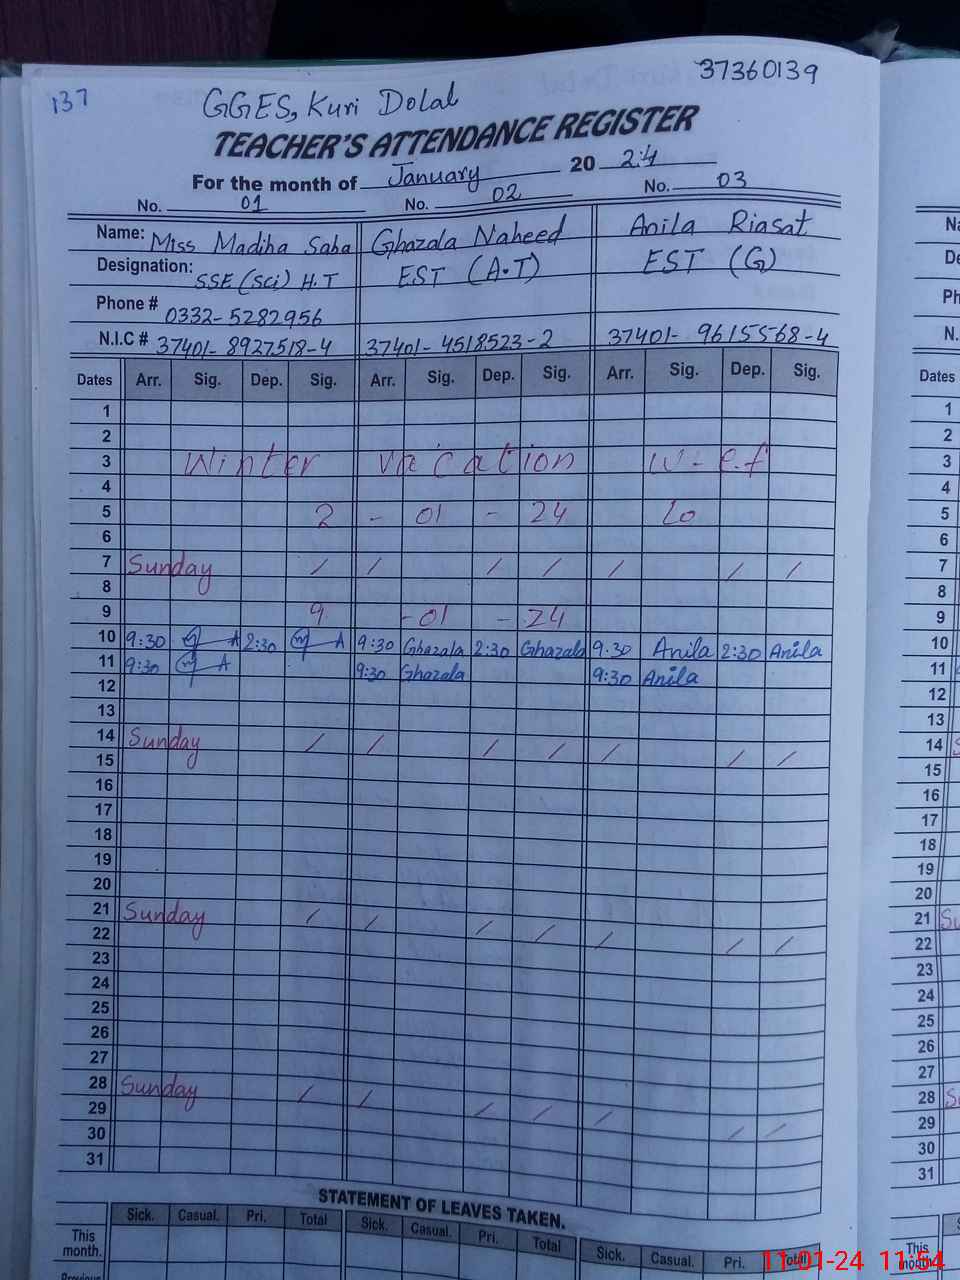 137
37360139
GGES, Kuri Dolal
TEACHER'S ATTENDANCE REGISTER
For the month of January 2024
No. 01 No. 02 No. 03
Name: Miss Madiha Saba Ghazala Naheed Anila Riasat
Designation: SSE (Sci) H.T EST (A.T) EST (G)
Phone # 0332-5282956
N.I.C # 37401-8927518-4 37401-4518523-2 37401-9615568-4
Dates Arr. Sig. Dep. Sig. Arr. Sig. Dep. Sig. Arr. Sig. Dep. Sig.
1
2
3 Winter Vacation w-e.f
4
5 2 - 01 - 24 to
6
7 Sunday / / / / / / /
8
9 9 -01 - 24
10 9:30 A 2:30 A 9:30 Ghazala 2:30 Ghazala 9.30 Anila 2:30 Anila
11 9:30 A 9:30 Ghazala 9:30 Anila
12
13
14 Sunday / / / / / / /
15
16
17
18
19
20
21 Sunday / / / / / / /
22
23
24
25
26
27
28 Sunday / / / / / / /
29
30
31
STATEMENT OF LEAVES TAKEN.
Sick. Casual. Pri. Total Sick. Casual. Pri. Total Sick. Casual. Pri. Total
This month.
Dates
1
2
3
4
5
6
7
8
9
10
11
12
13
14
15
16
17
18
19
20
21
22
23
24
25
26
27
28
29
30
31
This month
11-01-24 11:54